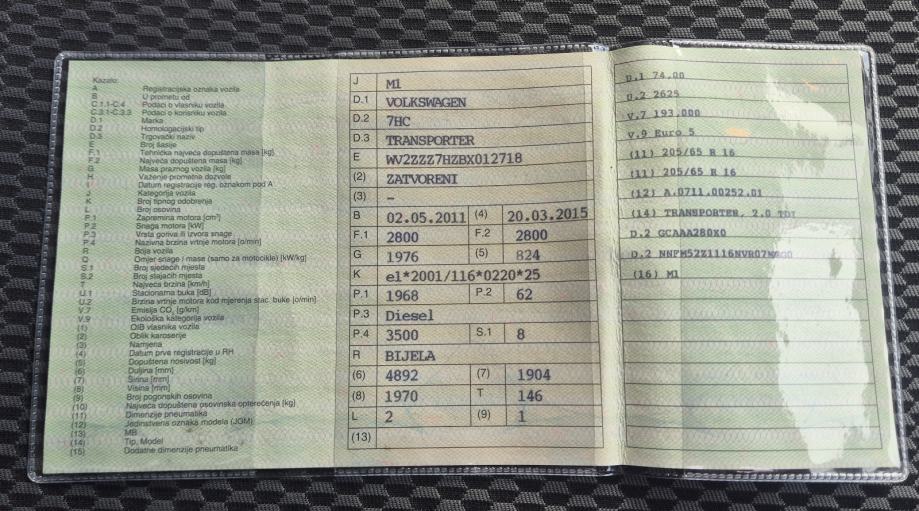 Kazalo:
A Registracijska oznaka vozila
B U prometu od
C.1.1-C.4 Podaci o vlasniku vozila
C.3.1-C.3.3 Podaci o korisniku vozila
D.1 Marka
D.2 Homologacijski tip
D.3 Trgovački naziv
E Broj šasije
F.1 Tehnička najveća dopuštena masa [kg]
F.2 Najveća dopuštena masa [kg]
G Masa praznog vozila [kg]
H Važenje prometne dozvole
I Datum registracije reg. oznakom pod A
J Kategorija vozila
K Broj tipnog odobrenja
L Broj osovina
P.1 Zapremina motora [cm³]
P.2 Snaga motora [kW]
P.3 Vrsta goriva ili izvora snage
P.4 Nazivna brzina vrtnje motora [o/min]
R Boja vozila
Q Omjer snage i mase (samo za motocikle) [kW/kg]
S.1 Broj sjedećih mjesta
S.2 Broj stajaćih mjesta
T Najveća brzina [km/h]
U.1 Stacionarna buka [dB]
U.2 Brzina vrtnje motora kod mjerenja stac. buke [o/min]
V.7 Emisija CO₂ [g/km]
V.9 Ekološka kategorija vozila
(1) OIB vlasnika vozila
(2) Oblik karoserije
(3) Namjena
(4) Datum prve registracije u RH
(5) Dopuštena nosivost [kg]
(6) Duljina [mm]
(7) Širina [mm]
(8) Visina [mm]
(9) Broj pogonskih osovina
(10) Najveća dopuštena osovinska opterećenja [kg]
(11) Dimenzije pneumatika
(12) Jedinstvena oznaka modela (JOM)
(13) MB
(14) Tip, Model
(15) Dodatne dimenzije pneumatika
J M1
D.1 VOLKSWAGEN
D.2 7HC
D.3 TRANSPORTER
E WV2ZZZ7HZBX012718
(2) ZATVORENI
(3) –
B 02.05.2011 (4) 20.03.2015
F.1 2800 F.2 2800
G 1976 (5) 824
K e1*2001/116*0220*25
P.1 1968 P.2 62
P.3 Diesel
P.4 3500 S.1 8
R BIJELA
(6) 4892 (7) 1904
(8) 1970 T 146
L 2 (9) 1
(13)
U.1 74.00
U.2 2625
V.7 193.000
V.9 Euro 5
(11) 205/65 R 16
(11) 205/65 R 16
(12) A.0711.00252.01
(14) TRANSPORTER, 2.0 TDI
D.2 GCAAA280X0
(16) M1